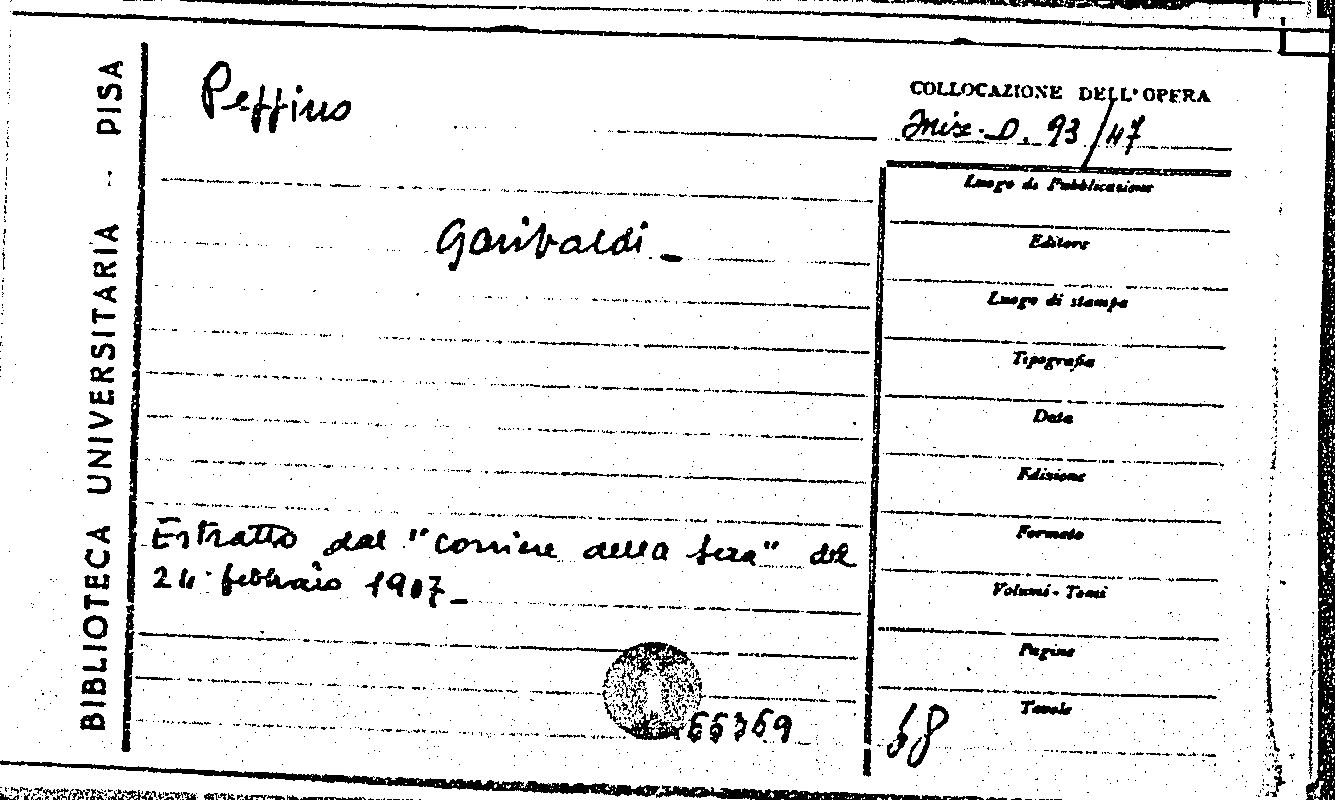 BIBLIOTECA UNIVERSITARIA - PISA
Peppino
Garibaldi _
Estratto dal "Corriere della sera" del
24 febbraio 1907 _
66369
COLLOCAZIONE DELL'OPERA
Misc. D. 93/47
Luogo di Pubblicazione
Editore
Luogo di stampa
Tipografia
Data
Edizione
Formato
Volumi - Tomi
Pagine
Tavole